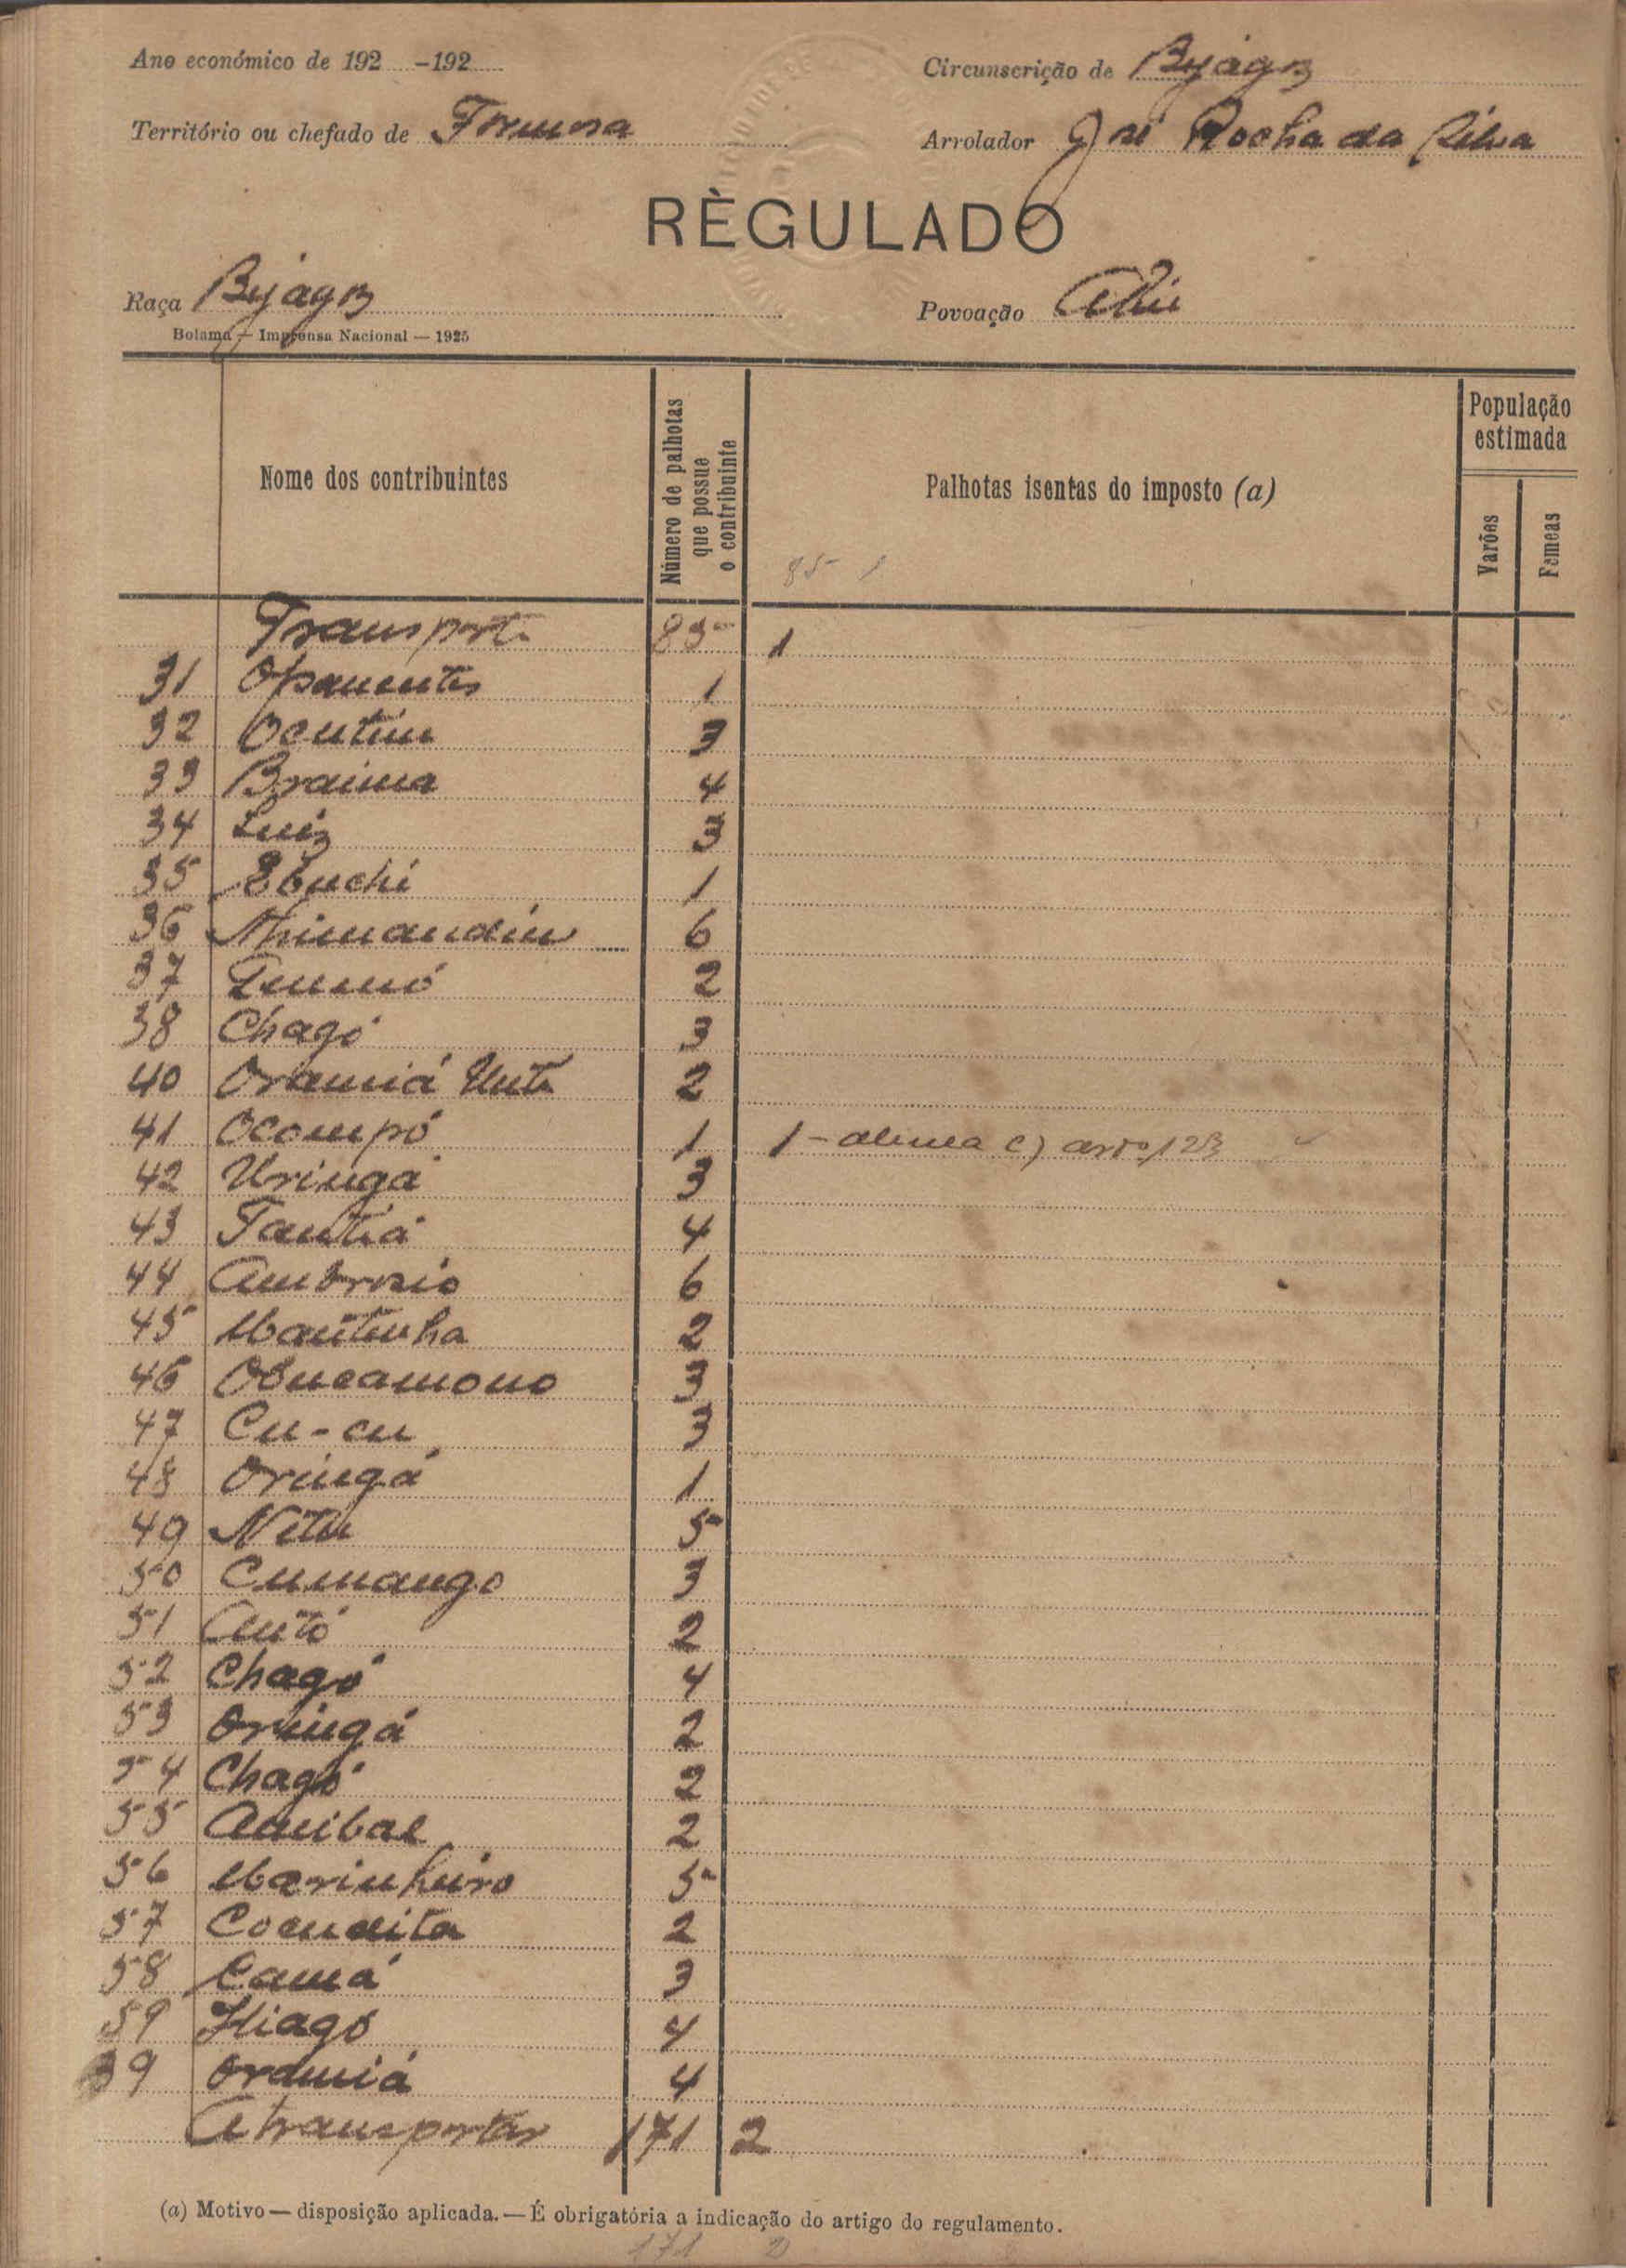 Ano económico de 192 -192
Circunscrição de Byagoz
Território ou chefado de Formosa
Arrolador José Rocha da Silva
RÈGULADO
Raça Byagoz
Povoação Abú
Bolama — Imprensa Nacional — 1925
Nome dos contribuintes
Número de palhotas que possue o contribuinte
Palhotas isentas do imposto (a)
População estimada
Varões
Femeas
85 1
Transporte 85 1
31 Opamentes 1
32 Ocutim 3
33 Braima 4
34 Luiz 3
35 Ebuchi 1
36 Nhimandim 6
37 2
38 Chagó 3
40 Oramiá Unte 2
41 Ocompó 1 1 - alinea c) artº 123
42 Uringá 3
43 Tantiá 4
44 Ambrosio 6
45 Mantinha 2
46 Obucamono 3
47 Cu-cu 3
48 Oringá 1
49 Nitu 5
50 Cumango 3
51 Antó 2
52 Chagó 4
53 Oringá 2
54 Chagó 2
55 Anibal 2
56 Marinheiro 5
57 Cocudita 2
58 Camá 3
59 Thiagó 4
39 Oramiá 4
A transportar 171 2
(a) Motivo — disposição aplicada. — É obrigatória a indicação do artigo do regulamento.
171 2